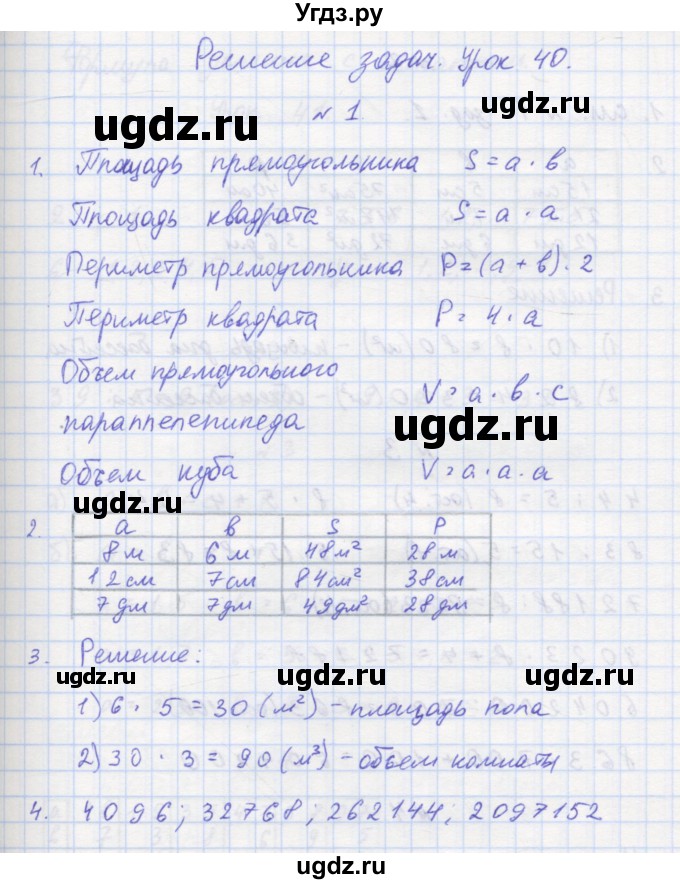 Угдз.ру
Решение задач. Урок 40.
№ 1
ugdz.ru ugdz.ru
1. Площадь прямоугольника S = a · в
Площадь квадрата S = a · a
Периметр прямоугольника P = (a + в) · 2
Периметр квадрата P = 4 · a
Объем прямоугольного
параллелепипеда V = a · в · c
ugdz.ru
Объем куба V = a · a · a
ugdz.ru
2. a в S P
8 м 6 м 48 м² 28 м
12 см 7 см 84 см² 38 см
7 дм 7 дм 49 дм² 28 дм
ugdz.ru
3. Решение:
ugdz.ru ugdz.ru
1) 6 · 5 = 30 (м²) - площадь пола
2) 30 · 3 = 90 (м³) - объем комнаты
ugdz.ru
4. 4096; 32768; 262144; 2097152
ugdz.ru